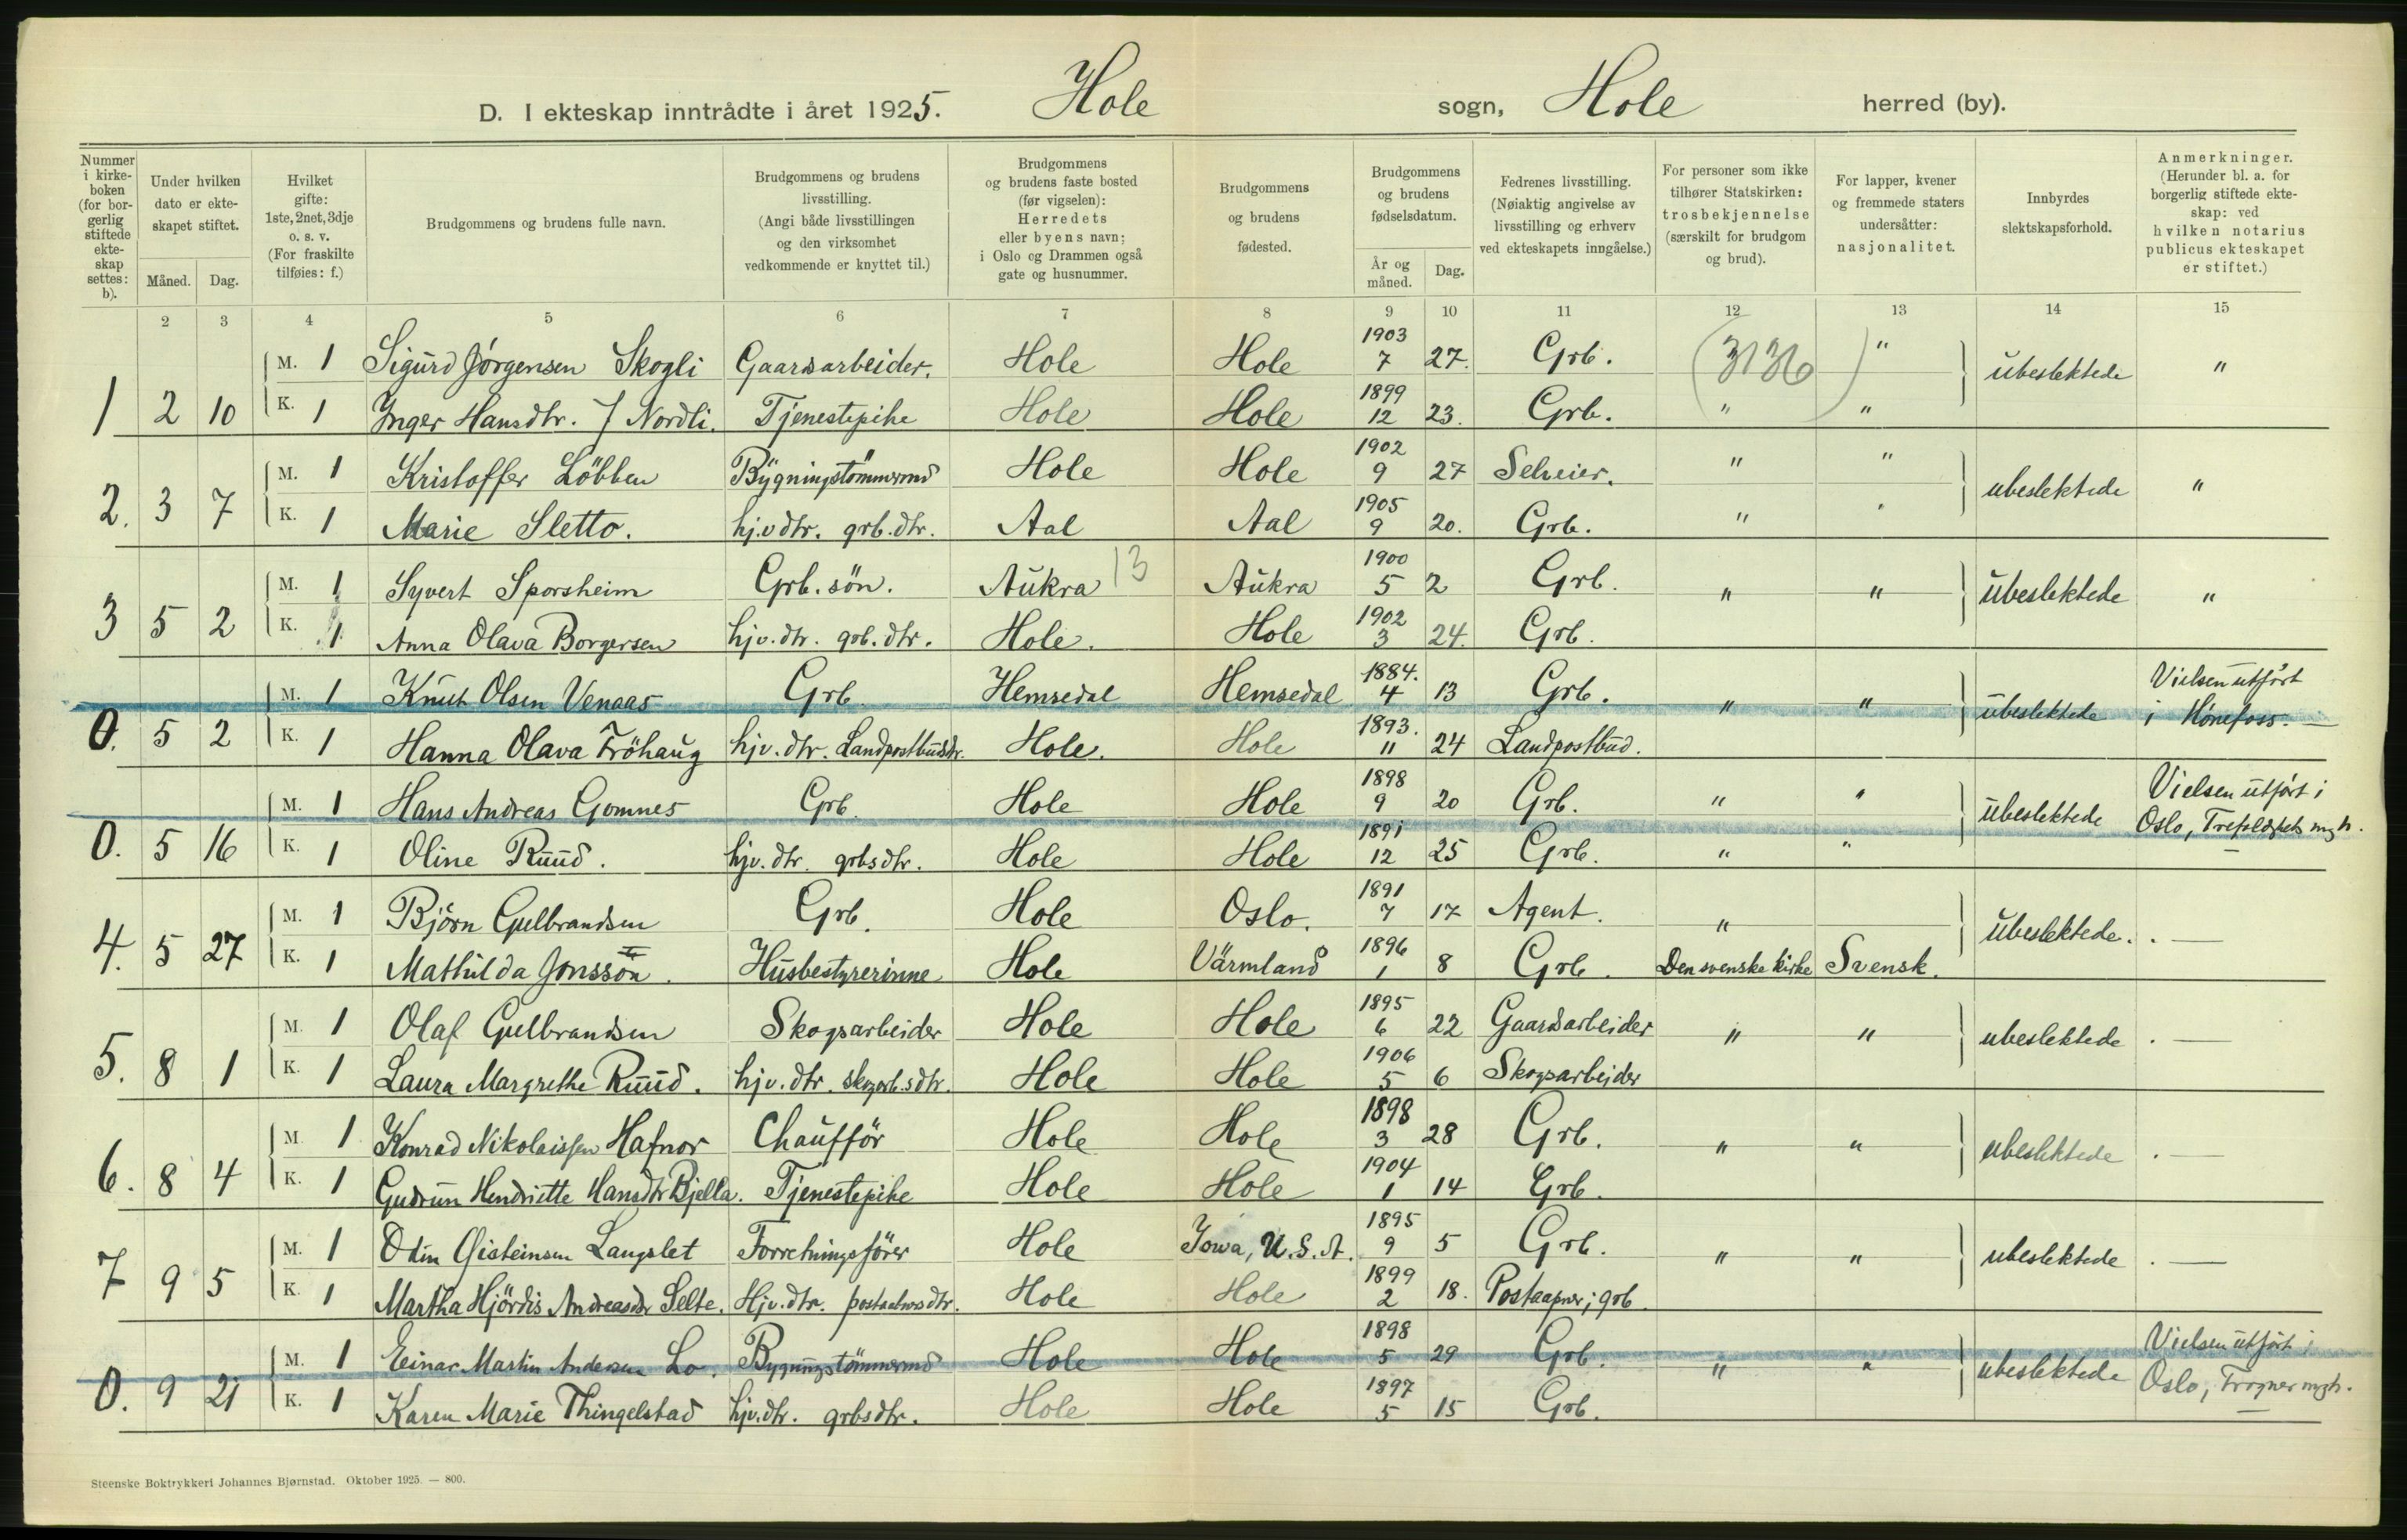 D. I ekteskap inntrådte i året 1925. Hole sogn, Hole herred (by).
Nummer i kirkeboken (for borgerlig stiftede ekteskap settes: b).
Under hvilken dato er ekteskapet stiftet.
Måned. Dag.
Hvilket gifte: 1ste, 2net, 3dje o. s. v. (For fraskilte tilføies: f.)
Brudgommens og brudens fulle navn.
Brudgommens og brudens livsstilling. (Angi både livsstillingen og den virksomhet vedkommende er knyttet til.)
Brudgommens og brudens faste bosted (før vigselen): Herredets eller byens navn; i Oslo og Drammen også gate og husnummer.
Brudgommens og brudens fødested.
Brudgommens og brudens fødselsdatum.
År og måned. Dag.
Fedrenes livsstilling. (Nøiaktig angivelse av livsstilling og erhverv ved ekteskapets inngåelse.)
For personer som ikke tilhører Statskirken: trosbekjennelse (særskilt for brudgom og brud).
For lapper, kvener og fremmede staters undersåtter: nasjonalitet.
Innbyrdes slektskapsforhold.
Anmerkninger. (Herunder bl. a. for borgerlig stiftede ekteskap: ved hvilken notarius publicus ekteskapet er stiftet.)
2 3 4 5 6 7 8 9 10 11 12 13 14 15
M. 1 Sigurd Jörgensen Skogli Gaardsarbeider. Hole Hole 1903 7 27. Grb. (3136) " ubeslektede "
1 2 10 K. 1 Inger Hansdtr. Nordli. Tjenestepike Hole Hole 1899 12 23. Grb. " "
M. 1 Kristoffer Löbben Bygningstömmermd Hole Hole 1902 9 27 Selveier. " " ubeslektede "
2. 3 7 K. 1 Marie Sletto. hjv. dtr. grb. dtr. Aal Aal 1905 9 20. Grb. " "
M. 1 Syvert Sporsheim Grb. sön. Aukra 13 Aukra 1900 5 2 Grb. " " ubeslektede "
3 5 2 K. 1 Anna Olava Borgersen hjv. dtr. grb. dtr. Hole. Hole 1902 3 24. Grb.
M. 1 Knut Olsen Venaas Grb. Hemsedal Hemsedal 1884. 4 13 Grb. " " ubeslektede Vielsen utført i Hönefoss. —
0. 5 2 K. 1 Hanna Olava Fröhaug hjv. dtr. Landpostbudsdtr. Hole. Hole 1893. 11 24 Landpostbud.
M. 1 Hans Andreas Gomnes Grb. Hole Hole 1898 9 20 Grb. " " ubeslektede Vielsen utført i Oslo, mgh.
0. 5 16 K. 1 Oline Ruud. hjv. dtr. grbsdtr. Hole Hole 1891 12 25 Grb. " "
M. 1 Björn Gulbrandsen Grb. Hole Oslo. 1891 7 17 Agent. " ubeslektede. . —
4. 5 27 K. 1 Mathilda Jonsson. Husbestyrerinne Hole Värmland 1896 1 8 Grb. Den svenske kirke Svensk.
M. 1 Olaf Gulbrandsen Skogsarbeider Hole Hole 1895 6 22 Gaardsarbeider " " ubeslektede . —
5. 8 1 K. 1 Laura Margrethe Ruud. hjv. dtr. skogarb.sdtr. Hole Hole 1906 5 6 Skogsarbeider
M. 1 Konrad Nikolaissen Hafnor Chaufför Hole Hole 1898 3 28 Grb. " " ubeslektede . —
6. 8 4 K. 1 Gudrun Hendriette Hansdtr Bjella. Tjenestepike Hole Hole 1904 1 14 Grb.
M. 1 Odin Gisteinsen Langslet Forretningsförer Hole Iowa, U.S.A. 1895 9 5 Grb. " " ubeslektede . —
7 9 5 K. 1 Martha Hjördis Andreasdtr Selte. Hjv. dtr. Hole Hole 1899 2 18. Postaapner; grb.
M. 1 Einar Martin Andersen Lo. Bygningstömmermd Hole Hole 1898 5 29 Grb. " " ubeslektede Vielsen utført i Oslo, Frogner mgh.
0. 9 21 K. 1 Karen Marie Thingelstad hjv. dtr. grbsdtr. Hole Hole 1897 5 15 Grb.
Steenske Boktrykkeri Johannes Bjørnstad. Oktober 1925. — 800.